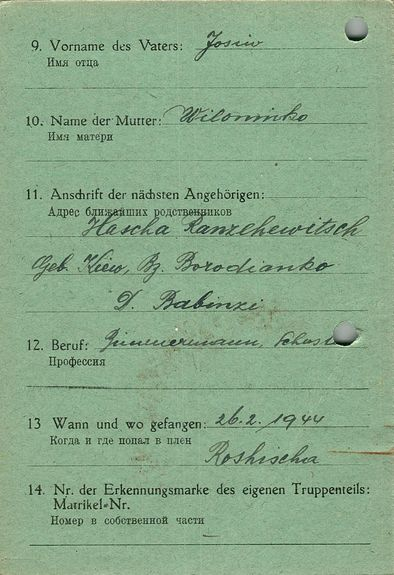 9. Vorname des Vaters: Josiw
Имя отца
10. Name der Mutter: Wilominko
Имя матери
11. Anschrift der nächsten Angehörigen:
Адрес ближайших родственников
Hascha Ranzehewitsch
Geb. Kiew, Bz. Borodianko
D. Babinzi
12. Beruf: Zimmermann,
Профессия
13 Wann und wo gefangen: 26.2.1944
Когда и где попал в плен
Roshischa
14. Nr. der Erkennungsmarke des eigenen Truppenteils:
Matrikel-Nr.
Номер в собственной части